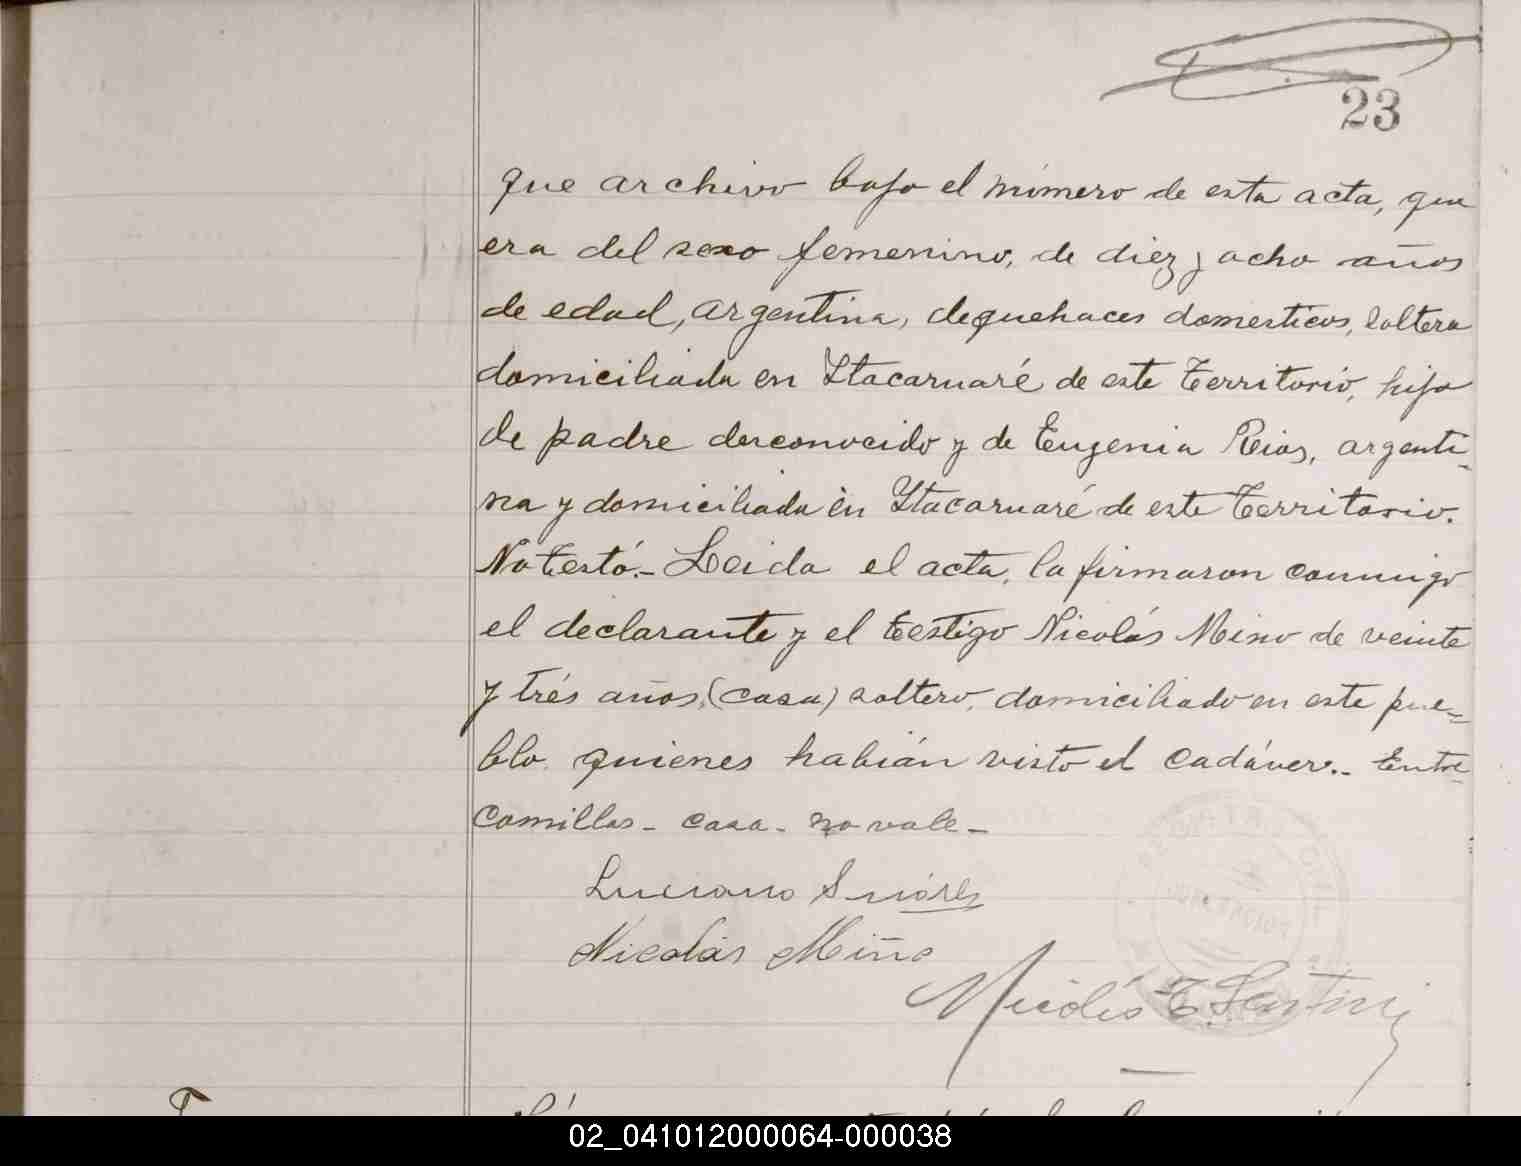 23
que archivo bajo el número de esta acta, que
era del sexo femenino, de diez y ocho años
de edad, argentina, dequehaces domesticos, soltera
domiciliada en Itacaruaré de este Territorio, hija
de padre desconocido y de Eugenia Rios, argenti-
na y domiciliada en Itacaruaré de este Territorio.
No testó.- Leida el acta, la firmaron conmigo
el declarante y el testigo Nicolás Mino de veinte
y trés años, (casa) soltero, domiciliado en este pue-
blo, quienes habián visto el cadáver.- Entre-
comillas - casa - no vale -
Luciano Suáres
Nicolás Miño
02_041012000064-000038